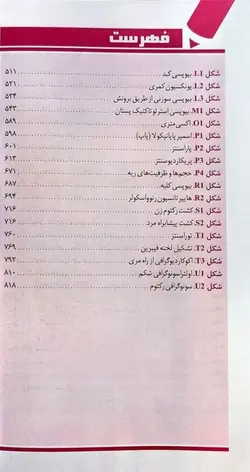 فهرست
شکل L1. بیوپسی کبد ۵۱۱
شکل L2. پونکسیون کمری ۵۲۱
شکل L3. بیوپسی سوزنی از طریق برونش ۵۲۴
شکل M1. بیوپسی استرئوتاکتیک پستان ۵۴۳
شکل O1. اکسی‌متری ۵۸۹
شکل P1. اسمیر پاپانیکولا (پاپ) ۵۹۸
شکل P2. پاراسنتز ۶۰۱
شکل P3. پریکاردیوسنتز ۶۱۳
شکل P4. حجم‌ها و ظرفیت‌های ریه ۶۷۱
شکل R1. بیوپسی کلیه ۶۸۷
شکل R2. هایپرتانسیون رنوواسکولر ۶۹۴
شکل S1. کشت رکتوم زن ۷۱۶
شکل S2. کشت پیشابراه مرد ۷۱۶
شکل T1. توراسنتز ۷۶۰
شکل T2. تشکیل لخته فیبرین ۷۶۹
شکل T3. اکوکاردیوگرافی از راه مری ۷۹۲
شکل U1. اولتراسونوگرافی شکم ۸۱۰
شکل U2. سونوگرافی رکتوم ۸۱۸